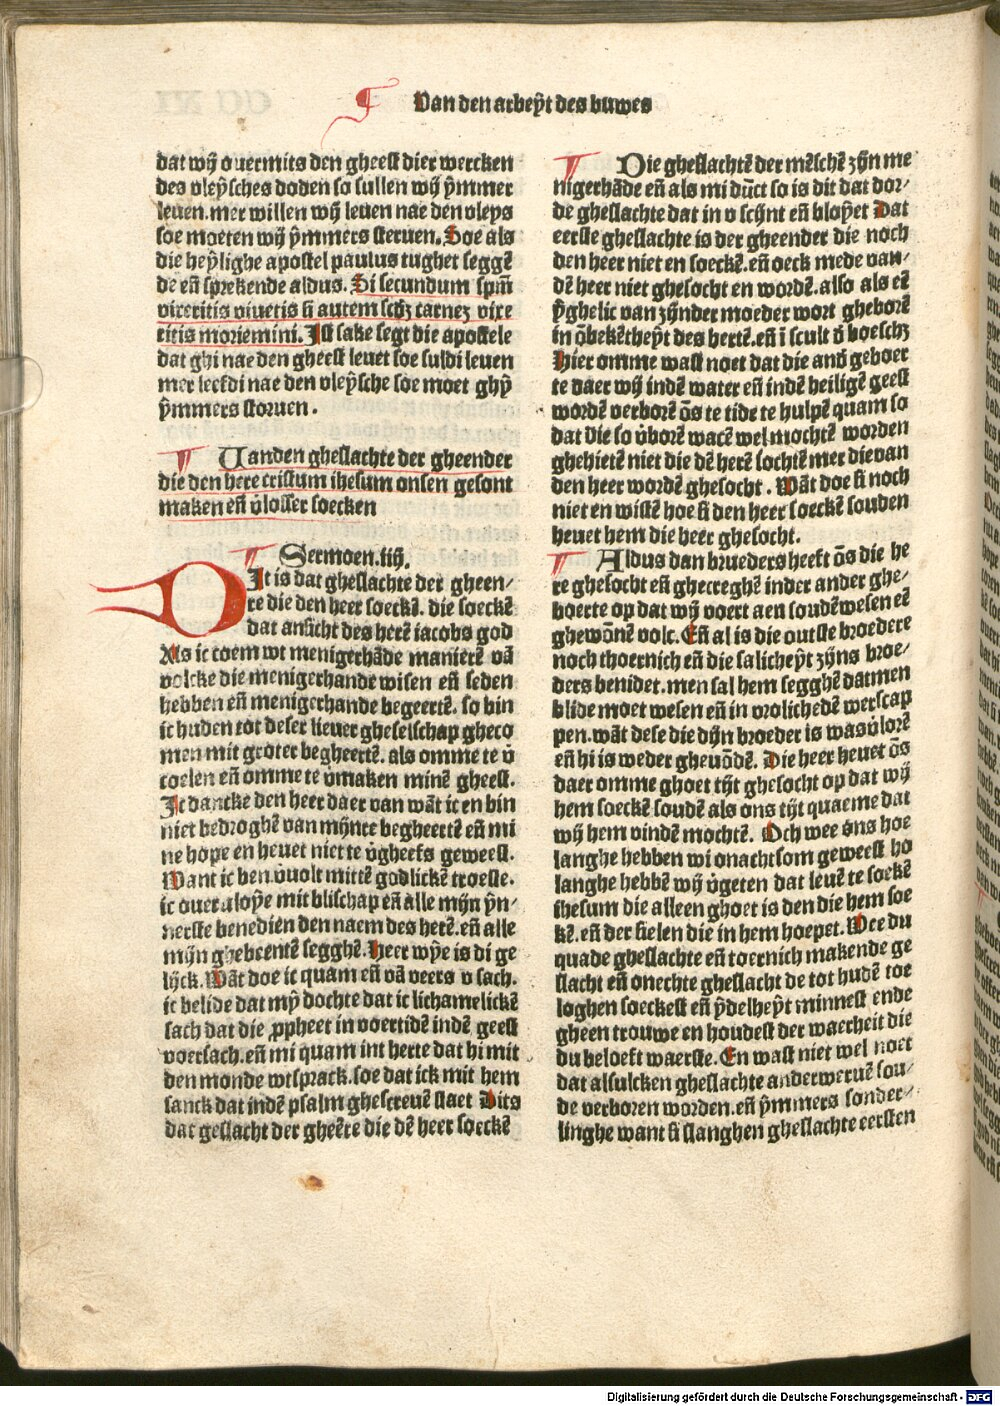 Van den arbeyt des buwes
dat wÿ ouermits den gheest dier wercken
des vleÿsches doden so sullen wÿ ÿmmer
leuen. mer willen wÿ leuen nae den vleys
soe moeten wÿ ÿmmers steruen. Soe als
die heÿlighe apostel paulus tughet seggē
de eñ sprekende aldus. Si secundum spm̄
vixeritis viuetis si autem scdꝫ carneꝫ vixe
ritis moriemini. Ist sake segt die apostele
dat ghi nae den gheest leuet soe suldi leuen
mer leefdi nae den vleÿsche soe moet ghÿ
ÿmmers storuen.
Uanden gheslachte der gheender
die den here cristum ihesum onsen gesont
maken eñ v̓losser soecken
Sermoen. iiÿ.
DIt is dat gheslachte der gheen⸗
re die den heer soeckē. die soeckē
dat ansicht des herē iacobs god
Als ic coem wt menigerhāde manierē vā
volcke die menigerhande wisen eñ seden
hebben eñ menigerhande begeertē. so bin
ic huden tot deser lieuer gheselschap gheco
men mit groter begheertē. als omme te v̓
coelen eñ omme te v̓maken minē gheest.
Ic dancke den heer daer van wāt ic en bin
niet bedroghē van mÿnre begheertē eñ mi
ne hope en heuet niet te v̓gheefs geweest.
Want ic ben v̓uolt mittē godlickē troeste.
ic ouervloÿe mit blischap eñ alle mÿn ÿn⸗
nerste benedien den naem des herē. eñ alle
mÿn ghebeentē segghē. Heer wÿe is di ge
lÿck. Wāt doe ic quam eñ vā veers v sach.
ic belide dat mÿ dochte dat ic lichamelickē
sach dat die ꝓpheet in voertidē indē geest
voersach. eñ mi quam int herte dat hi mit
den monde wtsprack. soe dat ick mit hem
sanck dat indē psalm ghescreuē staet Dits
dat geslacht der gheēre die dē heer soeckē
Die gheslachtē der mēschē zÿn me
nigerhāde eñ als mi dūct so is dit dat dor⸗
de gheslachte dat in v scÿnt eñ bloÿet Dat
eerste gheslachte is der gheender die noch
den heer niet en soeckē. eñ oeck mede van⸗
dē heer niet ghesocht en wordē. also als eē
ÿghelic van zÿnder moeder wort gheborē
in ōbekētheÿt des hertē. eñ ī scult d̓ boescꝫ
Hier omme wast noet dat die and̓ geboer
te daer wÿ indē water eñ indē heiligē geest
wordē verborē ōs te tide te hulpē quam so
dat die so v̓borē wacē wel mochtē worden
ghehietē niet die dē herē sochtē mer die van
den heer wordē ghesocht. Wāt doe si noch
niet en wistē hoe si den heer soeckē souden
heuet hem die heer ghesocht.
Aldus dan brueders heeft ōs die he
re ghesocht eñ ghecreghē inder ander ghe⸗
boerte op dat wÿ voert aen soudē wesen eē
ghewōnē volc. Eñ al is die outste broedere
noch thoernich eñ die salicheÿt zÿns broe⸗
ders benidet. men sal hem segghē datmen
blide moet wesen eñ in vrolichedē werscap
pen. wāt dese die dÿn broeder is was v̓lorē
eñ hi is weder gheuōdē. Die heer heuet ōs
daer omme ghoet tÿt ghesocht op dat wÿ
hem soeckē soudē als ons tÿt quaeme dat
wÿ hem vindē mochtē. Och wee ons hoe
langhe hebben wi onachtsom geweest ho
langhe hebbē wÿ v̓geten dat leuē te soekē
ihesum die alleen ghoet is den die hem soe
kē. eñ der sielen die in hem hoepet. Wee du
quade gheslachte eñ toernich makende ge
slacht eñ onechte gheslacht de tot hudē toe
loghen soeckest eñ ÿdelheÿt minnest ende
gheen trouwe en houdest der waerheit die
du beloeft waerste. En wast niet wel noet
dat alsulcken gheslachte anderweruē sou⸗
de verboren worden. eñ ÿmmers sonder⸗
linghe want si slanghen gheslachte eersten
Digitalisierung gefördert durch die Deutsche Forschungsgemeinschaft - DFG